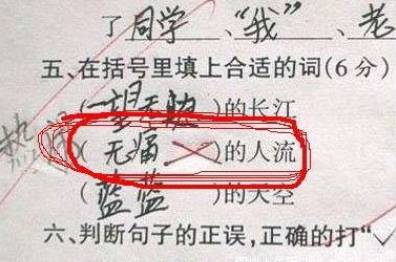 了同学、“我”、老
五、在括号里填上合适的词(6分)
(一望无边)的长江
热闹(无痛)的人流
(蓝蓝)的天空
六、判断句子的正误,正确的打“√